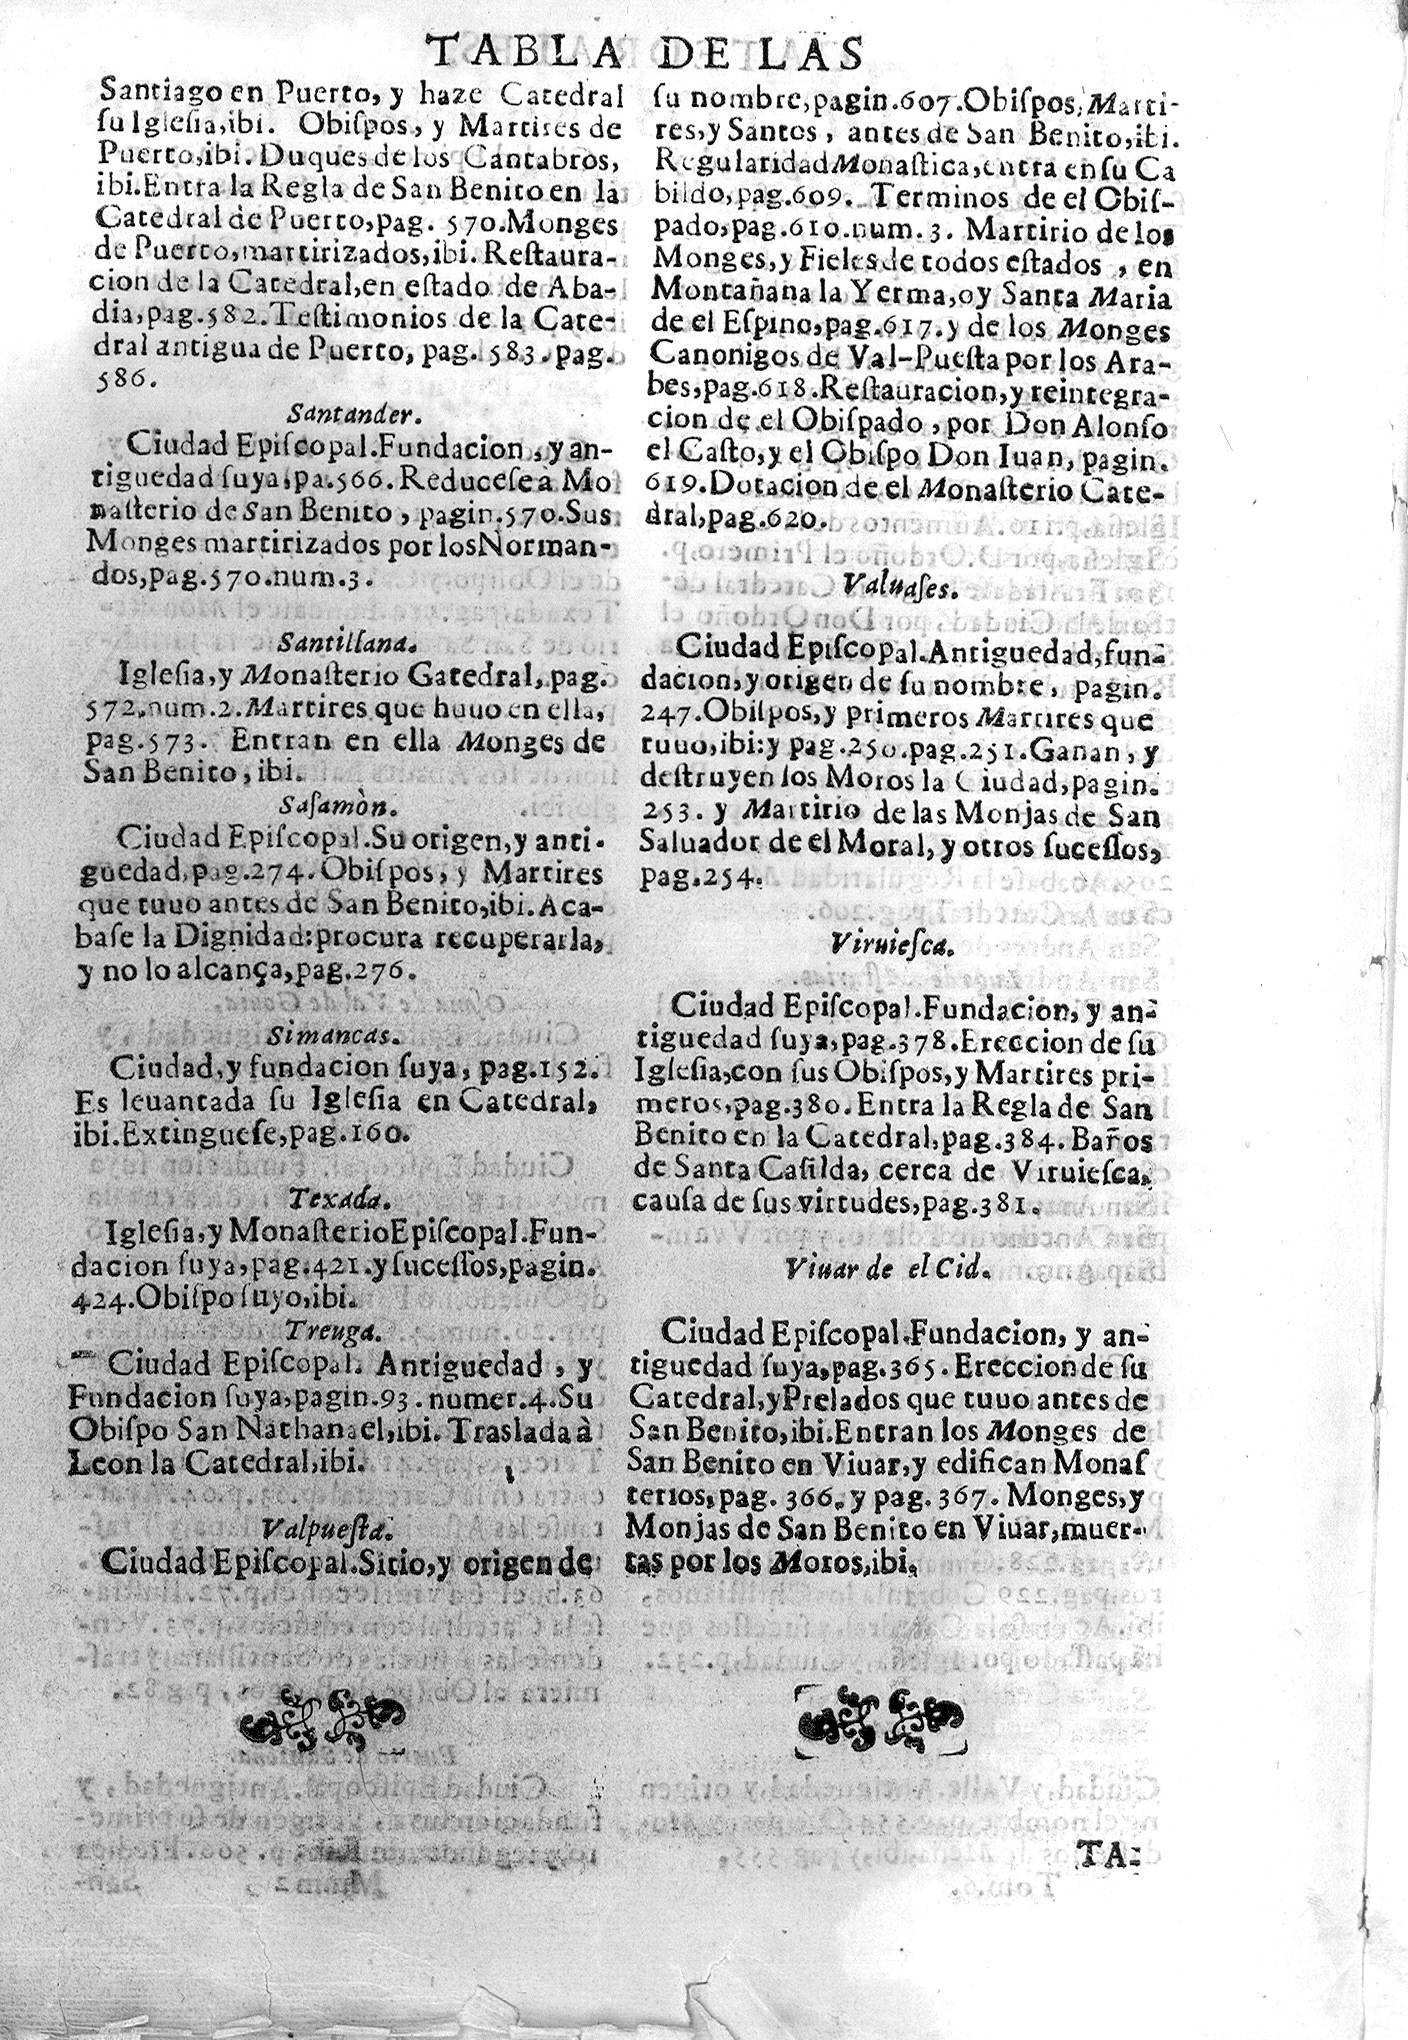 TABLA DE LAS
Santiago en Puerto, y haze Catedral
ſu Igleſia,ibi. Obiſpos, y Martires de
Puerto,ibi. Duques de los Cantabros,
ibi.Entra la Regla de San Benito en la
Catedral de Puerto,pag. 570.Monges
de Puerto,martirizados,ibi. Reſtaura-
cion de la Catedral,en eſtado de Aba-
dia,pag.582.Teſtimonios de la Cate-
dral antigua de Puerto, pag. 583.pag.
586.
Santander.
Ciudad Epiſcopal.Fundacion, y an-
tiguedad ſuya,pa.566.Reduceſe à Mo
naſterio de San Benito, pagin.570.Sus
Monges martirizados por los Norman-
dos,pag.570.num.3.
Santillana.
Igleſia,y Monaſterio Gatedral,pag.
572.num.2.Martires que huuo en ella,
pag.573. Entran en ella Monges de
San Benito,ibi.
Saſamòn.
Ciudad Epiſcopal.Su origen,y anti-
guedad,pag.274.Obiſpos, y Martires
que tuuo antes de San Benito,ibi.Aca-
baſe la Dignidad:procura recuperarla,
y no lo alcança,pag.276.
Simancas.
Ciudad,y fundacion ſuya, pag.152.
Es leuantada ſu Igleſia en Catedral,
ibi.Extingueſe,pag.160.
Texada.
Igleſia,y Monaſterio Epiſcopal.Fun-
dacion ſuya,pag.421.y ſuceſſos,pagin.
424.Obiſpo ſuyo,ibi.
Treuga.
Ciudad Epiſcopal. Antiguedad, y
Fundacion ſuya,pagin.93. numer.4.Su
Obiſpo San Nathanael,ibi. Traslada à
Leon la Catedral,ibi.
Valpueſta.
Ciudad Epiſcopal.Sitio,y origen de
ſu nombre,pagin.607.Obiſpos,Marti-
res,y Santos, antes de San Benito,ibi.
Regularidad Monaſtica,entra en ſu Ca
bildo,pag.609. Terminos de el Obiſ-
pado,pag.610.num.3. Martirio de los
Monges,y Fieles de todos eſtados, en
Montañana la Yerma,oy Santa Maria
de el Eſpino,pag.617.y de los Monges
Canonigos de Val-Pueſta por los Ara-
bes,pag.618.Reſtauracion,y reintegra-
cion de el Obiſpado, por Don Alonſo
el Caſto,y el Obiſpo Don Iuan, pagin.
619.Dotacion de el Monaſterio Cate-
dral,pag.620.
Valuaſes.
Ciudad Epiſcopal.Antiguedad,fun-
dacion,y origen de ſu nombre, pagin.
247.Obiſpos,y primeros Martires que
tuuo,ibi:y pag.250.pag.251.Ganan, y
deſtruyen los Moros la Ciudad,pagin.
253. y Martirio de las Monjas de San
Saluador de el Moral, y otros ſuceſſos,
pag.254.
Viruieſca.
Ciudad Epiſcopal.Fundacion, y an-
tiguedad ſuya,pag.378.Ereccion de ſu
Igleſia,con ſus Obiſpos,y Martires pri-
meros,pag.380.Entra la Regla de San
Benito en la Catedral,pag.384. Baños
de Santa Caſilda, cerca de Viruieſca,
cauſa de ſus virtudes,pag.381.
Viuar de el Cid.
Ciudad Epiſcopal.Fundacion, y an-
tiguedad ſuya,pag.365.Ereccion de ſu
Catedral,y Prelados que tuuo antes de
San Benito,ibi.Entran los Monges de
San Benito en Viuar,y edifican Monaſ
terios,pag. 366.y pag.367. Monges,y
Monjas de San Benito en Viuar,muer-
tas por los Moros,ibi.
TA-